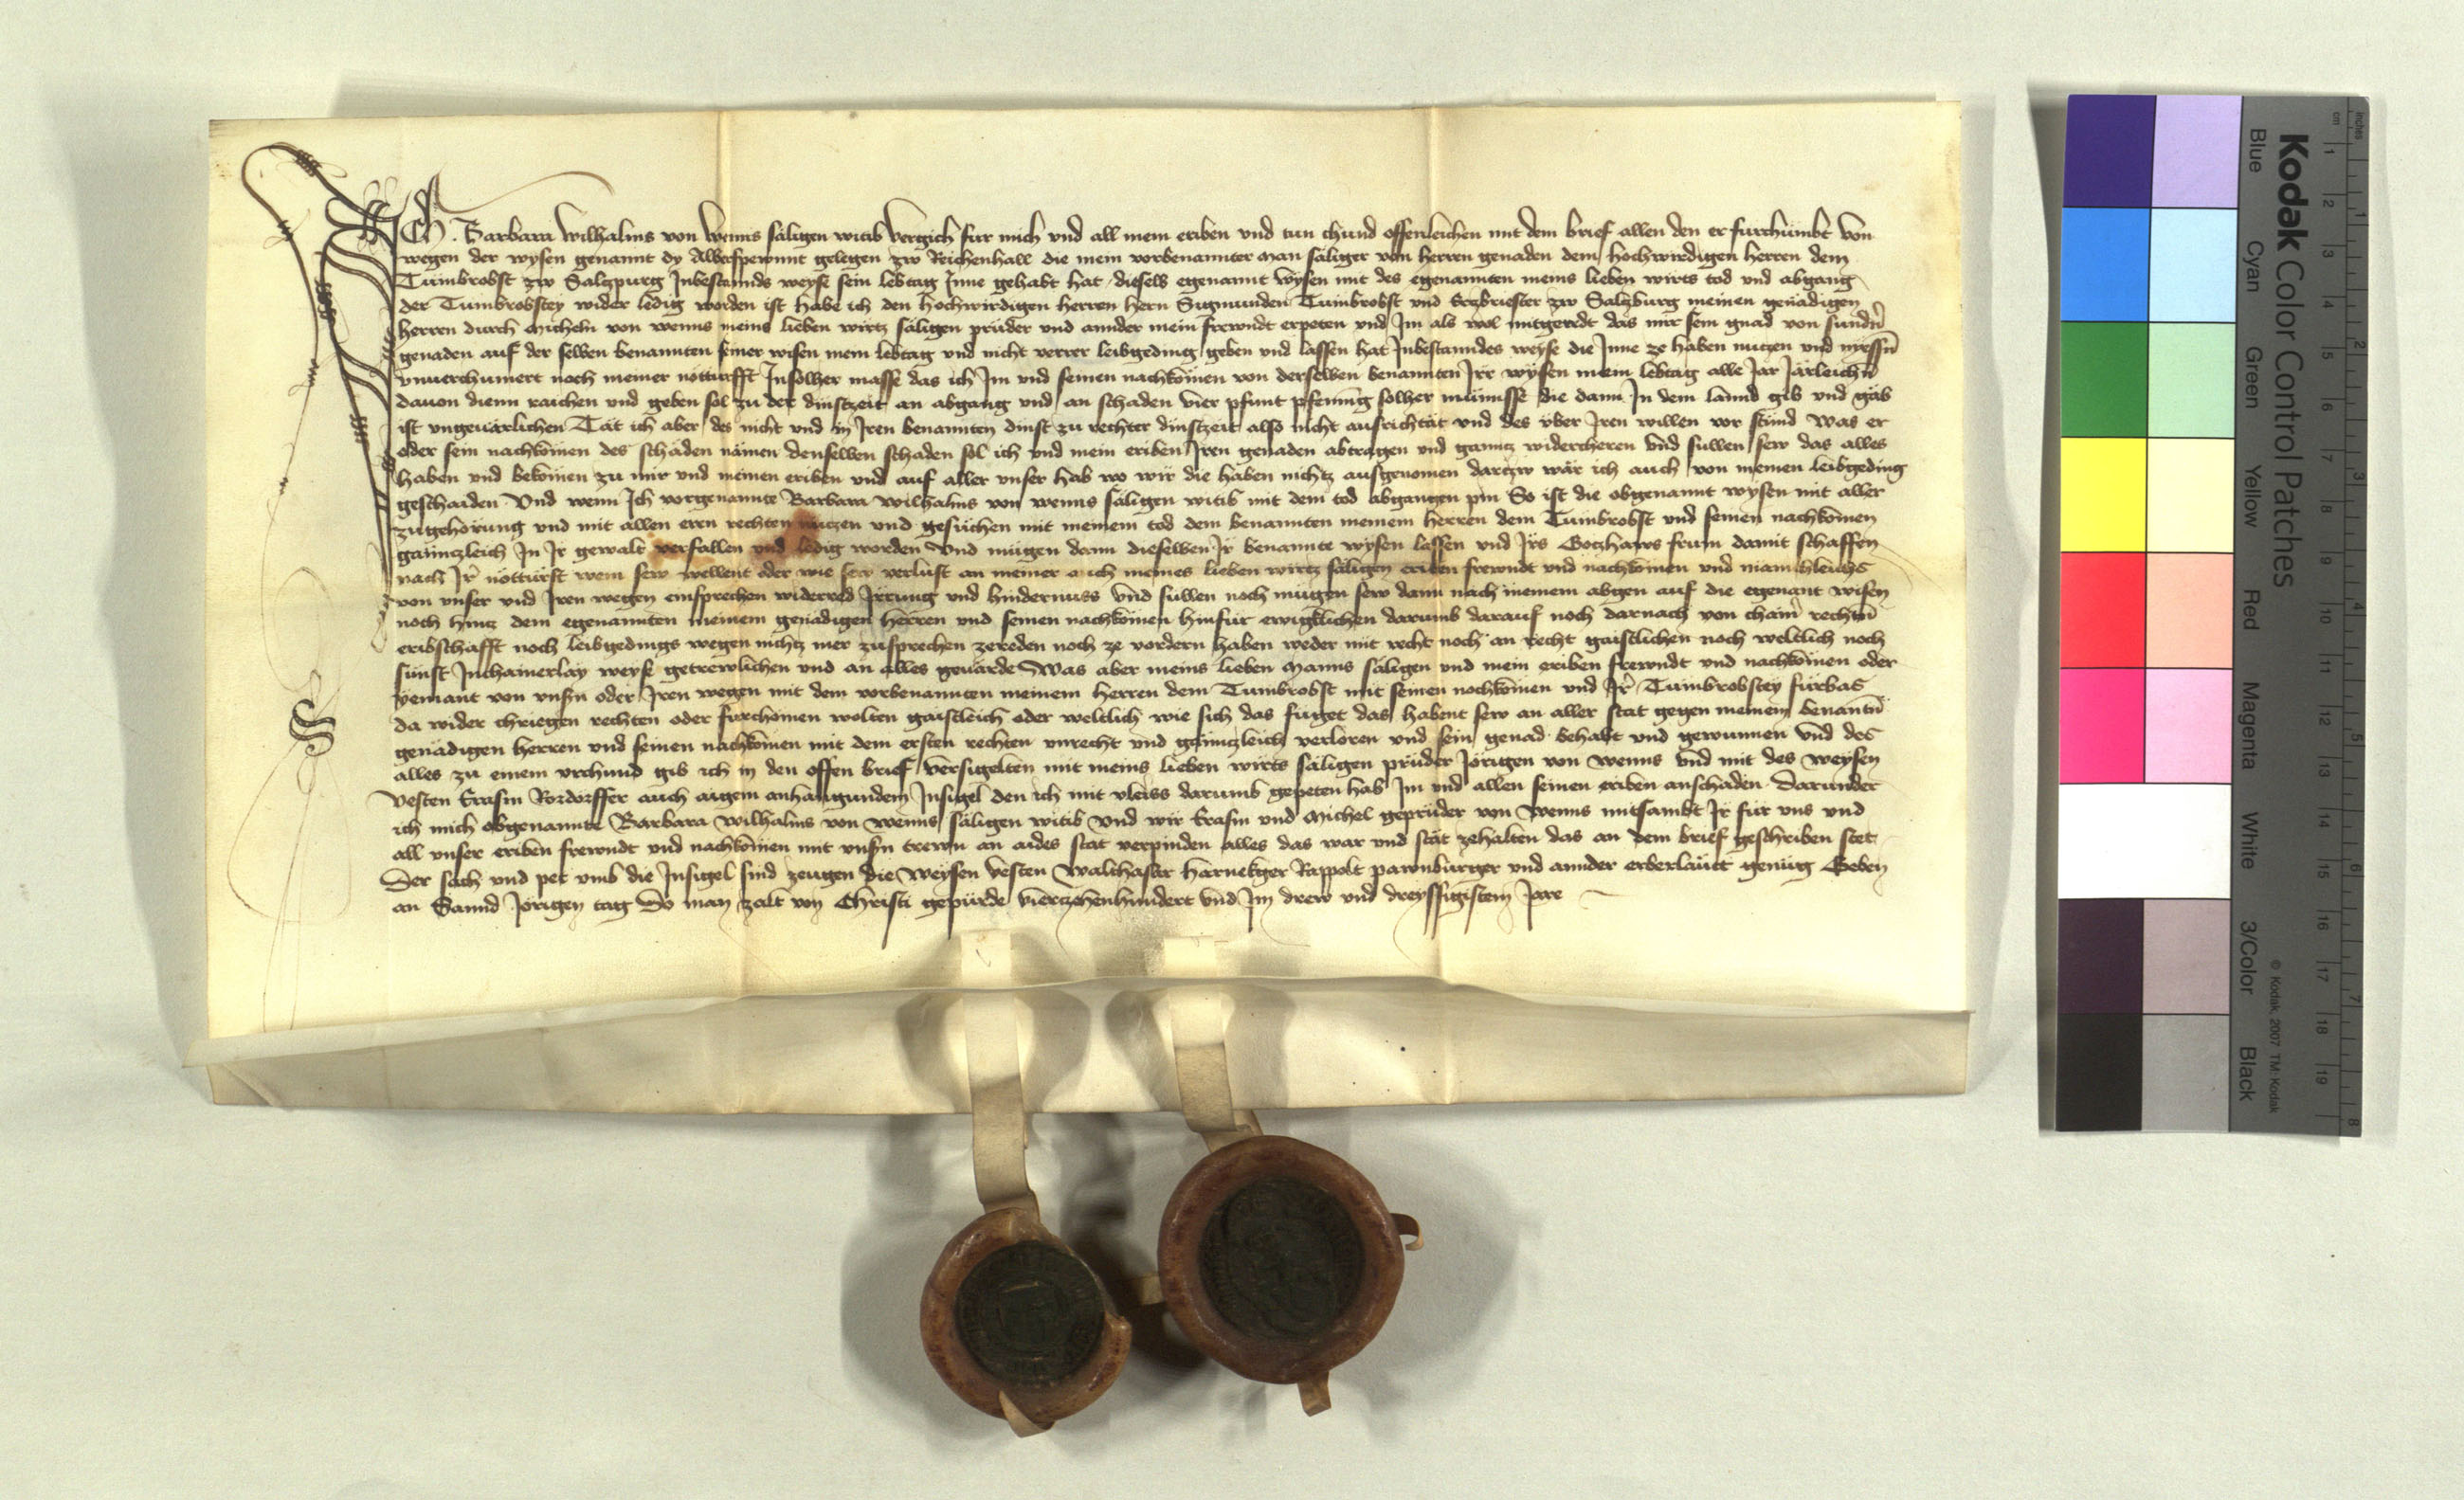 ICh Barbara Wilhalms von Wenns säligen witib vergich für mich vnd all mein eriben vnd tun chund offenleichen mit dem brief allen den er fürchümbt von
wegen der wysen genannt dy Alberspewnnt gelegen zw Reichenhall die mein vorbenannter man säliger von herren genaden dem hochwirdigen herren dem
Tumbrobst zw Salczpurg Inbestannds weyse sein lebtag Inne gehabt hat dieselb egenannt wysen mit des egenannten meins lieben wirts tod vnd abgang
der Tumbrobstey wider ledig worden ist habe ich den hochwirdigen herren hern Sigmunden Tumbrobst vnd Erczbriester zw Salczburg meinen genädigen
herren durch Micheln von wenns meins lieben wirtz säligen prüder vnd annder mein frewndt erpeten vnd Im als vol mitgeredt das mir sein gnad von sundn̄
genaden auf der selben benannten seiner wisen mein lebtag vnd nicht verrer leibgeding geben vnd lassen hat Inbestanndes weyse die Inne ze haben nuczen vnd nyessn̄
vnuerchumert nach meiner notturfft Insölher masse das ich Im vnd seinen nachkömen von derselben benannten Irr wysen mein lebtag alle Jar Järleichn̄
dauon dienn raichen vnd geben sol zu der dinstzeit an abgang vnd an schaden vier pfunt pfenning solher münnsse die dann In dem lannd gib vnd gäb
ist vngeuärlichen Tät ich aber des nicht vnd in Iren benannten dinst zu rechter dinstzeit also nicht ausrichtät vnd des über Iren willen vor stünd Was er
oder sein nachkömen des schaden nämen denselben schaden sol ich vnd mein eriben Iren genaden abtragen vnd gannz widercheren vnd sullen sew das alles
haben vnd bekömen zu mir vnd meinen eriben vnd auf aller vnser hab wo wir die haben nichtz ausgenomen dartzw wär ich auch von meinen leibgeding
geschaiden Vnd wenn Ich vorgenannte Barbara Wilhalms von wenns säligen witib mit dem tod abgangen pin So ist die obgenannt wysen mit aller
zugehörung vnd mit allen eren rechten nuczen vnd gesüchen mit meinem tod dem benannten meinem herren dem Tumbrobst vnd seinen nachkömen
gännczleich In Ir gewalt verfallen vnd ledig worden Vnd mügen dann dieselben Ir benannte wysen lassen vnd Irs Gotzhaws frum damit schaffen
nach Ir notturft wem sew wellent oder wie sew verlust an meiner auch meines lieben wirtz säligen eriben frewndt vnd nachkömen vnd
von vnser vnd Iren wegen einsprechen widerred Irrung vnd hindernuss Vnd sullen noch mügen sew dann nach meinem abgen auf die egenant wisen
noch hintz dem egenannten meinem genädigen herren vnd seinen nachkömen hinfür ewigklichen darumb darauf noch darnach von chain̄ rechtn̄
eribschafft noch leibgedings wegen nichtz mer zusprechen zereden noch ze vordern haben weder mit recht noch an recht gaistlichen noch weltlich noch
sünst Inchainerlay weyse getrewlichen vnd an alles geuärde Was aber meins lieben manns säligen vnd mein eriben frewndt vnd nachkömen oder
yemant von vnsn̄ oder Iren wegen mit dem vorbenannten meinem herren dem Tumbrobst mit seinen nochkömen vnd Ir̄ Tumbrobstey fürbas
da wider chriegen rechten oder fürchömen wolten gaistleich oder weltlich wie sich das füget das habent sew an aller stat gegen meinem benantn̄
genädigen herren vnd seinen nachkömen mit dem ersten rechten vnrecht vnd gännczleich verloren vnd sein genad behabt vnd gewunnen Vnd des
alles zu einem vrchund gib ich in den offen brief versigelten mit meins lieben wirts säligen prüder Jörigen von wenns vnd mit des Weysen
vesten Erasm Rordorffer auch aigem anhangundem Insigel den ich mit vleiss darumb gepeten hab Im vnd allen seinen eriben anschaden Darunder
ich mich obgenannte Barbara Wilhalms von wenns säligen witib Vnd wir Erasm vnd Michel geprüder von Wenns mitsambt Ir für vns vnd
all vnser eriben frewndt vnd nachkömen mit vnsn̄ trewn an aides stat verpinden alles das war vnd stät zehalten das an dem brief geschriben stet
Der sach vnd pet vmb die Insigel sind zeugen die Weysen vesten Walthasar Harnekger Rappolt pawnburger vnd annder erberläwt genüg Geben
an Sannd Jörigen tag Do man zalt von Christi gepürde vierzehenhundert Vnd Im drew vnd dreyssigistem Jare
S
Kodak Color Control Patches
Blue Cyan Green Yellow Red Magenta White 3/Color Black
© Kodak, 2007 TM: Kodak
inches 1 2 3 4 5 6 7 8
cm 1 2 3 4 5 6 7 8 9 10 11 12 13 14 15 16 17 18 19